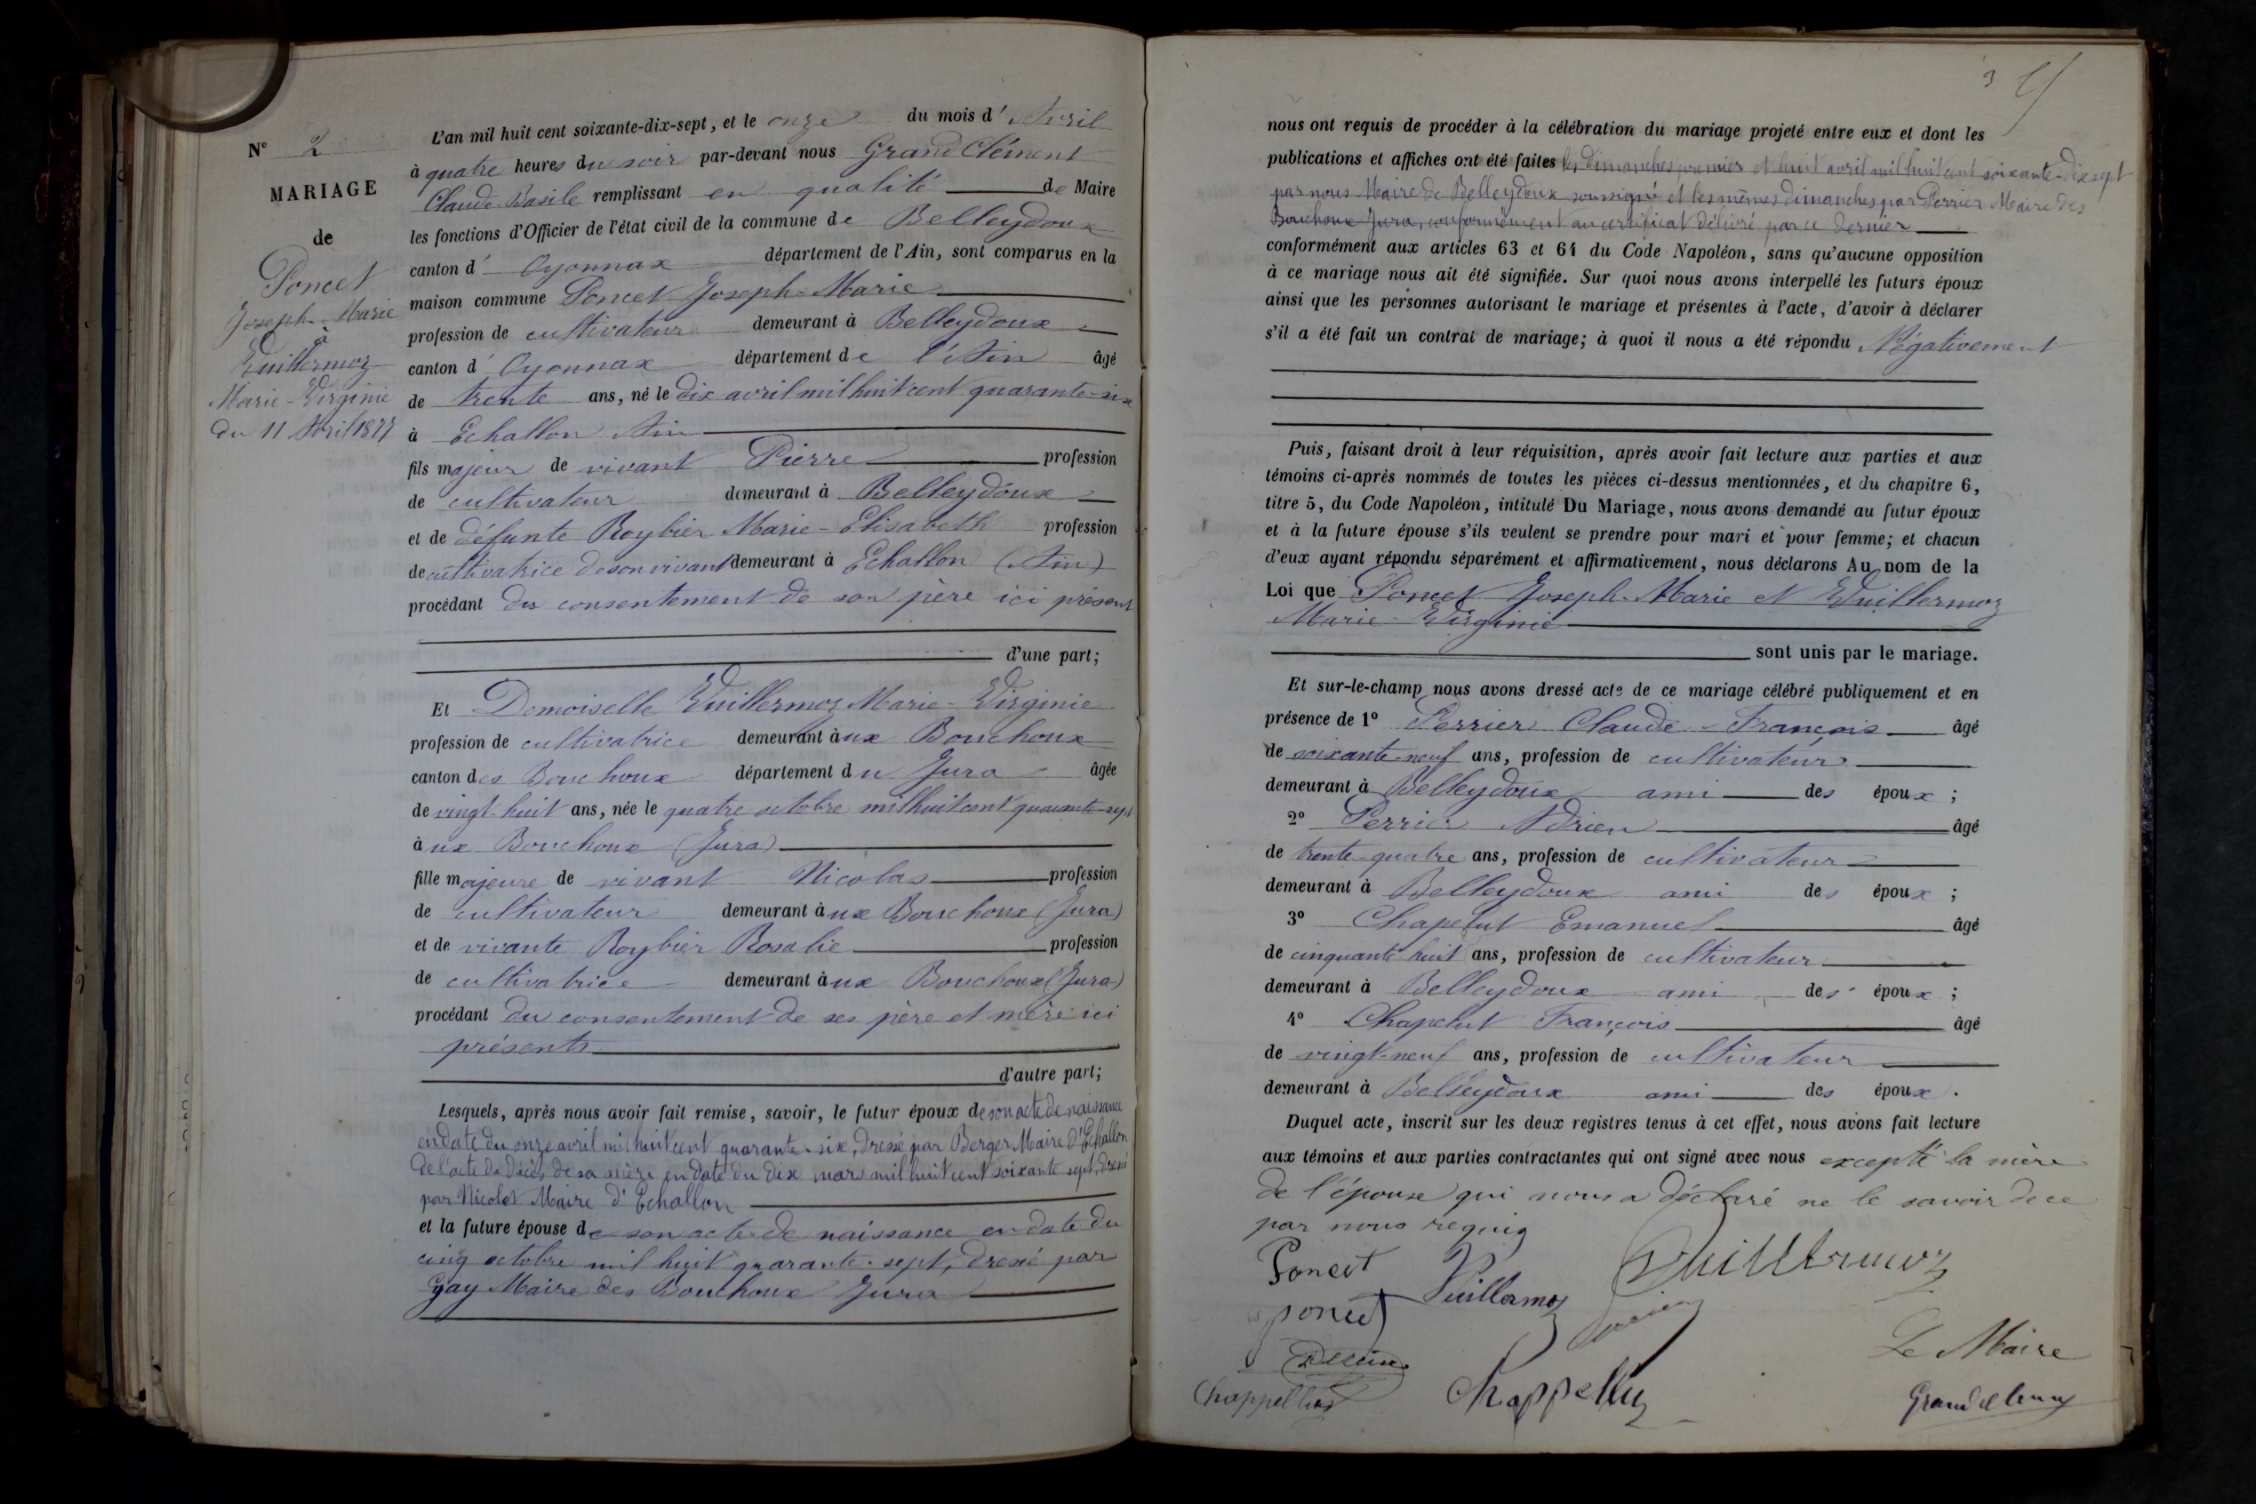 N° 2
MARIAGE
de
Poncet
Joseph-Marie
à
Vuillermoz
Marie-Virginie
du 11 Avril 1877
L'an mil huit cent soixante-dix-sept, et le onze du mois d'Avril
à quatre heures du soir par-devant nous Grand Clément
Claude-Basile remplissant en qualité de Maire
les fonctions d'Officier de l'état civil de la commune de Belleydoux
canton d'Oyonnax département de l'Ain, sont comparus en la
maison commune Poncet Joseph-Marie
profession de cultivateur demeurant à Belleydoux
canton d'Oyonnax département de l'Ain âgé
de trente ans, né le dix avril mil huit cent quarante-six
à Echallon Ain
fils majeur de vivant Pierre profession
de cultivateur demeurant à Belleydoux
et de défunte Roybier Marie-Elisabeth profession
de cultivatrice de son vivant demeurant à Echallon (Ain)
procédant du consentement de son père ici présent
d'une part;
Et Demoiselle Vuillermoz Marie-Virginie
profession de cultivatrice demeurant aux Bouchoux
canton des Bouchoux département du Jura âgée
de vingt-huit ans, née le quatre octobre mil huit cent quarante-sept
aux Bouchoux (Jura)
fille majeure de vivant Nicolas profession
de cultivateur demeurant aux Bouchoux (Jura)
et de vivante Roybier Rosalie profession
de cultivatrice demeurant aux Bouchoux (Jura)
procédant du consentement de ses père et mère ici
présents
d'autre part;
Lesquels, après nous avoir fait remise, savoir, le futur époux de son acte de naissance
en date du onze avril mil huit cent quarante-six, dressé par Berger Maire d'Echallon
de l'acte de décès de sa mère en date du dix mars mil huit cent soixante sept, dressé
par Nicolet Maire d'Echallon
et la future épouse de son acte de naissance en date du
cinq octobre mil huit quarante-sept, dressé par
Gay Maire des Bouchoux Jura
3
nous ont requis de procéder à la célébration du mariage projeté entre eux et dont les
publications et affiches ont été faites les dimanches premier et huit avril mil huit cent soixante-dix sept
par nous Maire de Belleydoux soussigné et les mêmes dimanches par Perrier Maire des
Bouchoux Jura, conformément au certificat délivré par ce dernier
conformément aux articles 63 et 64 du Code Napoléon, sans qu'aucune opposition
à ce mariage nous ait été signifiée. Sur quoi nous avons interpellé les futurs époux
ainsi que les personnes autorisant le mariage et présentes à l'acte, d'avoir à déclarer
s'il a été fait un contrat de mariage; à quoi il nous a été répondu Négativement
Puis, faisant droit à leur réquisition, après avoir fait lecture aux parties et aux
témoins ci-après nommés de toutes les pièces ci-dessus mentionnées, et du chapitre 6,
titre 5, du Code Napoléon, intitulé Du Mariage, nous avons demandé au futur époux
et à la future épouse s'ils veulent se prendre pour mari et pour femme; et chacun
d'eux ayant répondu séparément et affirmativement, nous déclarons Au nom de la
Loi que Poncet Joseph-Marie et Vuillermoz
Marie-Virginie
sont unis par le mariage.
Et sur-le-champ nous avons dressé acte de ce mariage célébré publiquement et en
présence de 1° Perrier Claude-François âgé
de soixante-neuf ans, profession de cultivateur
demeurant à Belleydoux ami des époux ;
2° Perrier Adrien âgé
de trente-quatre ans, profession de cultivateur
demeurant à Belleydoux ami des époux ;
3° Chapelut Emanuel âgé
de cinquante huit ans, profession de cultivateur
demeurant à Belleydoux ami des époux ;
4° Chapelut François âgé
de vingt-neuf ans, profession de cultivateur
demeurant à Belleydoux ami des époux.
Duquel acte, inscrit sur les deux registres tenus à cet effet, nous avons fait lecture
aux témoins et aux parties contractantes qui ont signé avec nous excepté la mère
de l'épouse qui nous a déclaré ne le savoir de ce
par nous requis
Poncet Vuillermoz Vuillermoz
poncet
Le Maire
Chappelluz
Grandclément